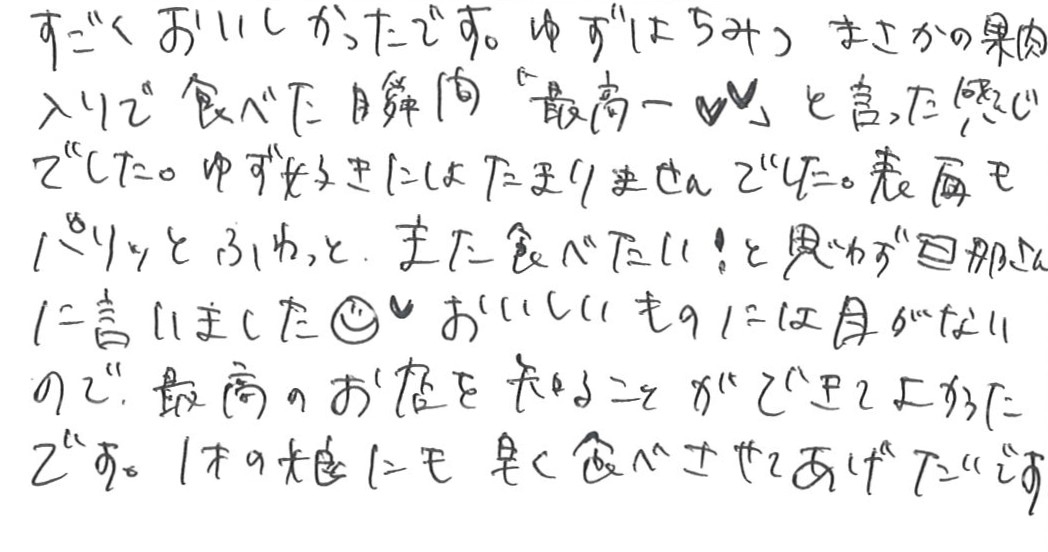 すごくおいしかったです。ゆずはちみつ まさかの果肉
入りで食べた瞬間「最高ー♥♥」と言った感じ
でした。ゆず好きにはたまりませんでした。表面も
パリッとふわっと、また食べたい！と思わず旦那さん
に言いました☺♥おいしいものには目がない
ので、最高のお店を知ることができてよかった
です。1才の娘にも早く食べさせてあげたいです